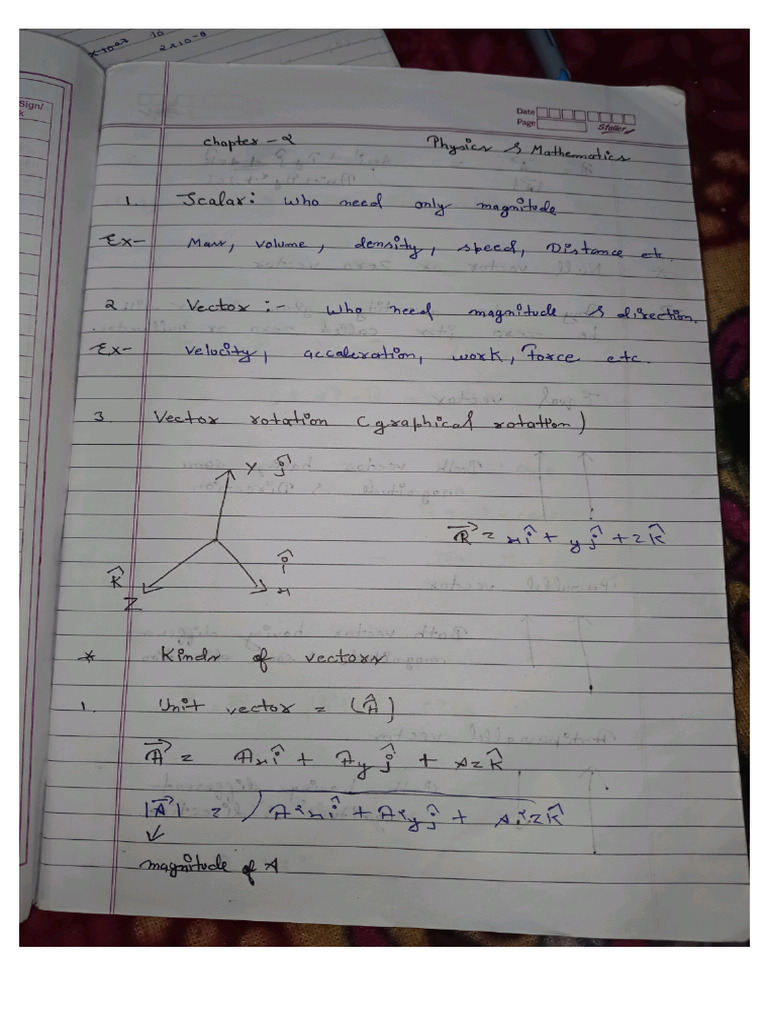 Sign/
k
x10^-3 10
2x10^-8
Date
Page
Sfaller
chapter - 2 Physics & Mathematics
1. Scalar: who need only magnitude
Ex- Mass, volume, density, speed, Distance etc.
2 Vector :- who need magnitude, & direction.
Ex- velocity, accaleration, work, Force etc.
3 Vector rotation (graphical rotation)
Y ĵ
R⃗ = xî + yĵ + zk̂
î
k̂
x
Z
* Kinds of vectors
1. Unit vector = (Â)
A⃗ = Axî + Ayĵ + Azk̂
|A⃗| =
magnitude of A